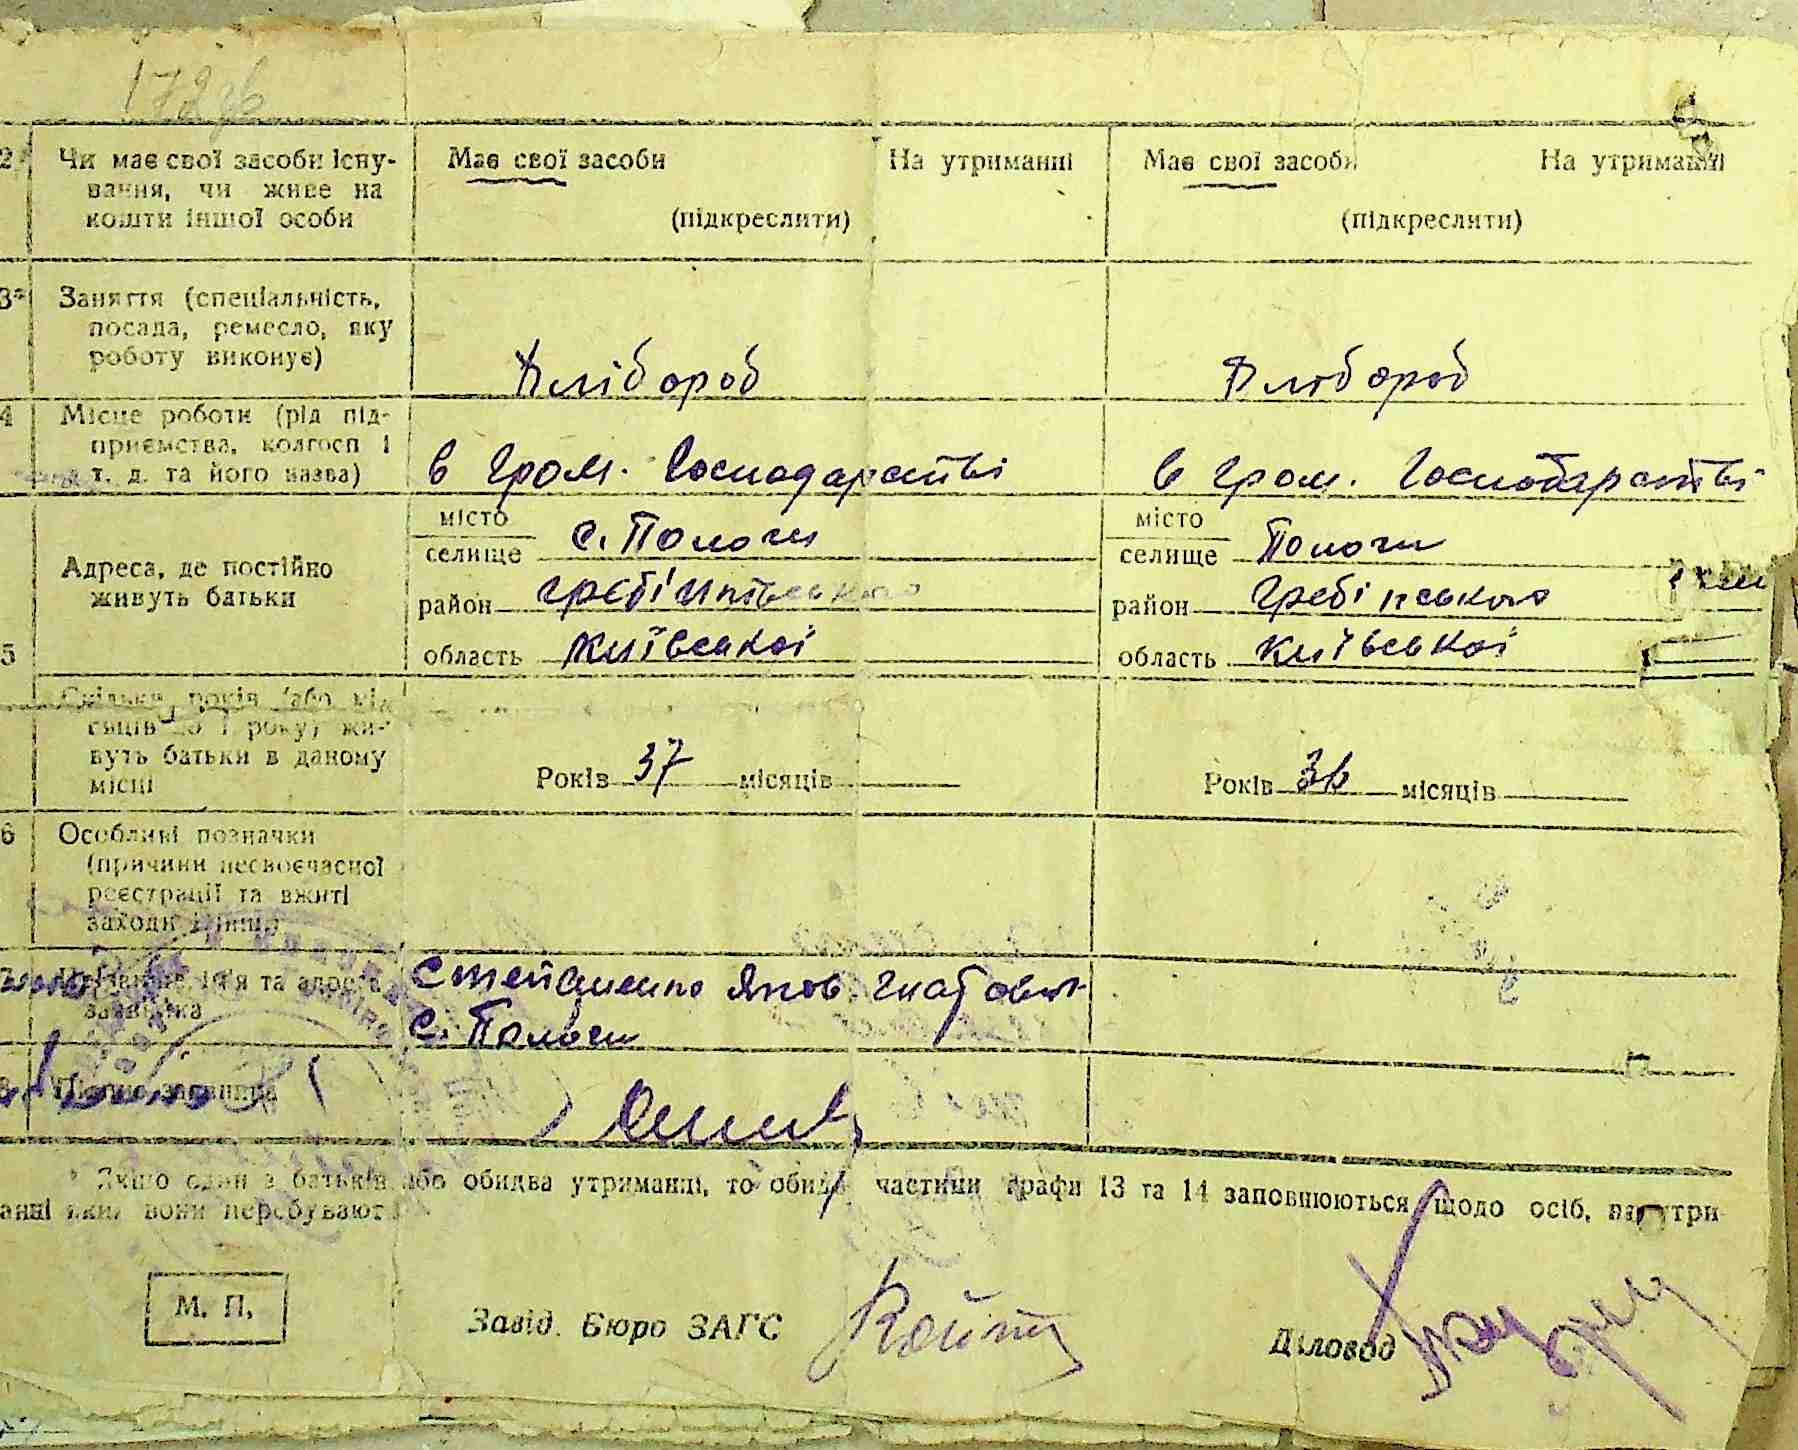 172зв
2 Чи має свої засоби існу- Має свої засоби На утриманні Має свої засоби На утриманні
вання, чи живе на
кошти іншої особи (підкреслити) (підкреслити)
3* Заняття (спеціальність,
посада, ремесло, яку
роботу виконує) Хлібороб Хлібороб
4 Місце роботи (рід під-
приємства, колгосп і
т. д. та його назва) в гром. господарстві в гром. господарстві
місто місто
селище с. Пологи селище Пологи
Адреса, де постійно
живуть батьки
район район Гребінського
5 область Київської область Київської
Скільки років (або мі-
сяців до 1 року) жи-
вуть батьки в даному
місці Років 37 місяців Років 36 місяців
6 Особливі позначки
(причини несвоєчасної
реєстрації та вжиті
заходи і інш.)
Прізвище, ім'я та адреса Яков
заявника с. Пологи
Підпис заявника
* Якщо один з батьків або обидва утриманні, то обидві частини графи 13 та 14 заповнюються щодо осіб, на утри-
анні яких вони перебувають.
М. П. Завід. Бюро ЗАГС Діловод